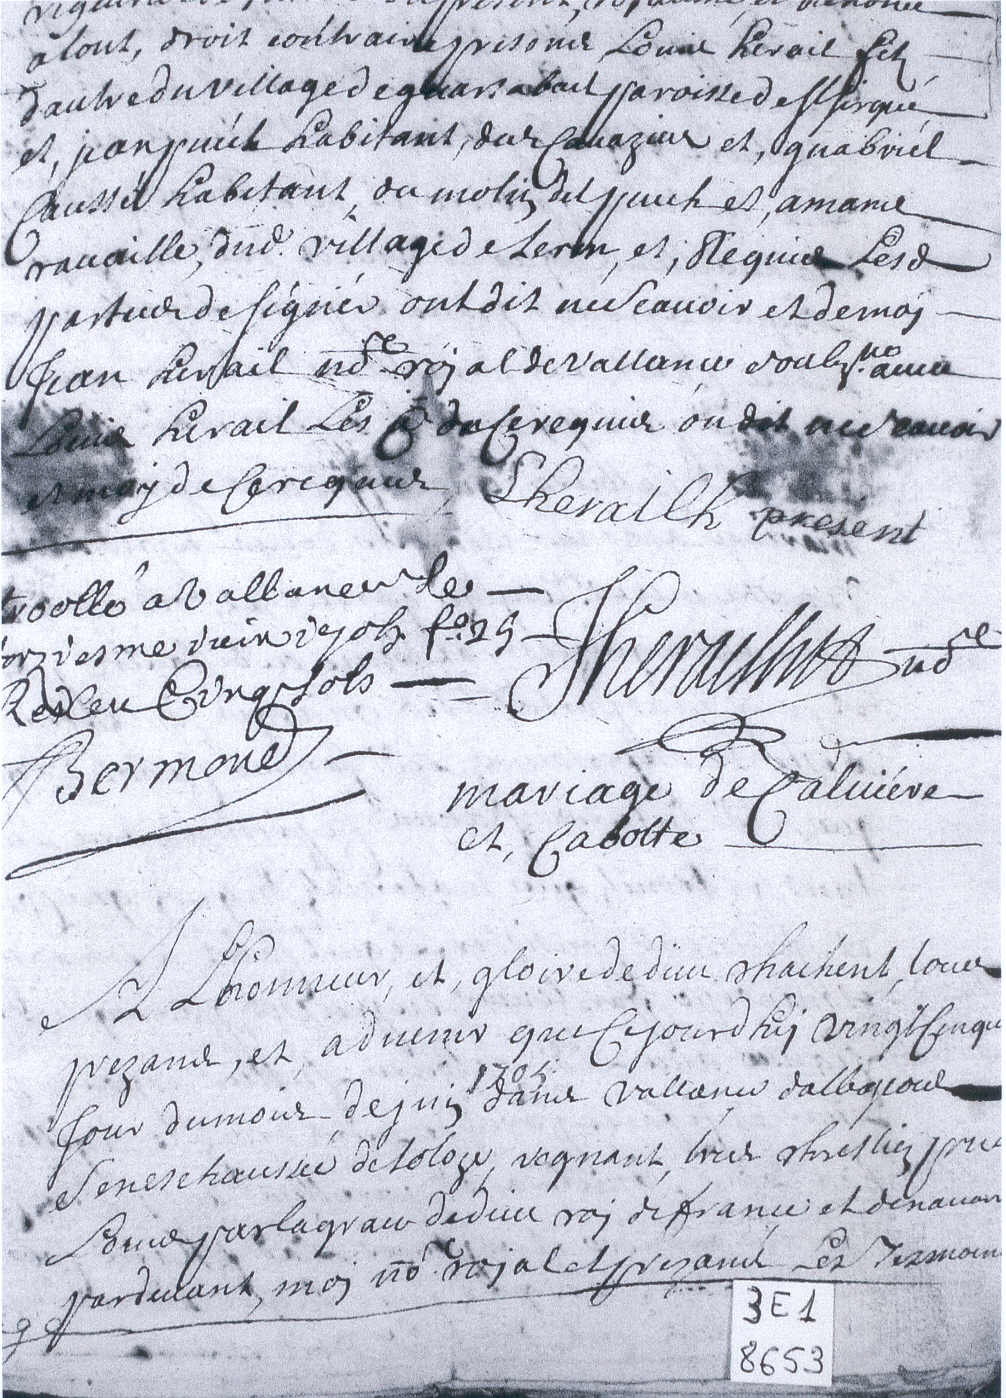 a tout, droit contraire presans Louis herail filz
dautre du village de quarsabail paroisse de St Sirgué
et, jean puech habitant, des Cauazius et, guabriél
Causse habitant, du molin del puech et, amans
rauaille, dud. village de et, Requis Lesd
parties de signer ont dit ne scauoir et de moj
Jean herail nore rojal de vallance soubzne auec
Louis herail Les du Ce requis on dit ne scauoir
et moy de Ce requis, Lherailh present
trollé a Vallance le
juin 1705 fo. 25
Receu Cinq sols
Jherailh nore
Bermond
mariage de Caluiére
et, Cabotte
A Lhonneur, et, gloire de dieu shachent, tous
prezans, et, aduenir que Cejourdhuj vingt Cinque
jour du mois de juin 1705 dans vallance dalbigeois
Seneschaussée de toloze, regnant, tres chrestien prince
Louis par la grace de dieu roj de france et de nauarre
pardeuant, moj nore rojal et prezans Les Tesmoins
3E1
8653